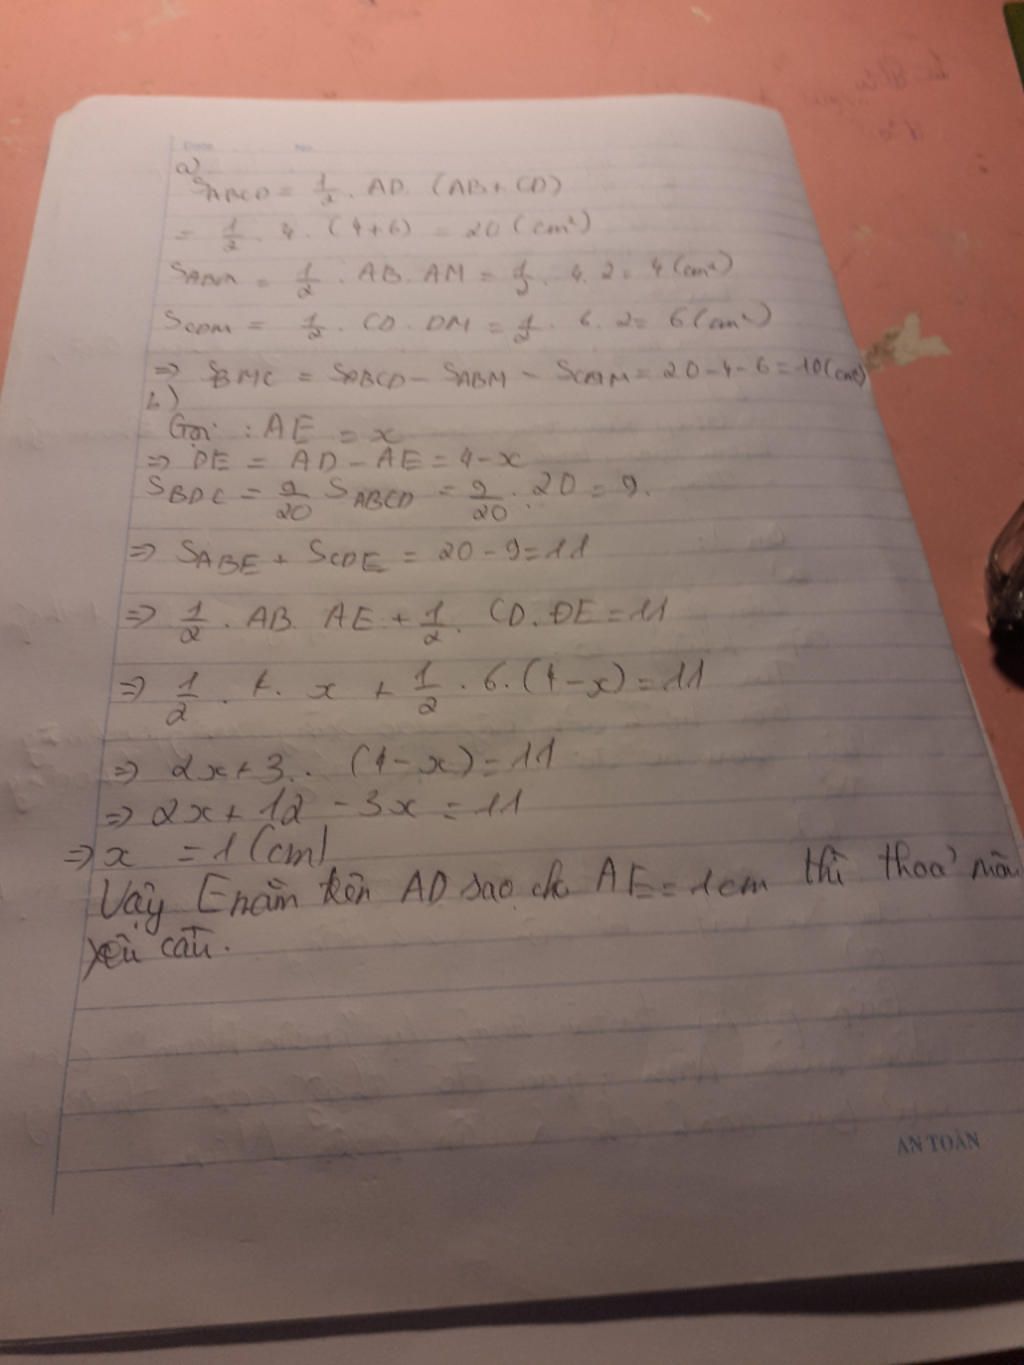 Date No.
a)
S_ABCD = 1/2 . AD. (AB + CD)
= 1/2 . 4 . (4+6) = 20 (cm²)
S_ABM = 1/2 . AB. AM = 1/2 . 4. 2 = 4 (cm²)
S_CDM = 1/2 . CD. DM = 1/2 . 6. 2 = 6 (cm²)
=> S_BMC = S_ABCD - S_ABM - S_CDM = 20 - 4 - 6 = 10 (cm²)
b)
Gọi : AE = x
=> DE = AD - AE = 4 - x
S_BDC = 9/20 S_ABCD = 9/20 . 20 = 9.
=> S_ABE + S_CDE = 20 - 9 = 11
=> 1/2 . AB. AE + 1/2 . CD. DE = 11
=> 1/2 . 4. x + 1/2 . 6. (4 - x) = 11
=> 2x + 3. . (4 - x) = 11
=> 2x + 12 - 3x = 11
=> x = 1 (cm)
Vậy E nằm trên AD sao cho AE = 1cm thì thoả mãn
yêu cầu.
AN TOÀN